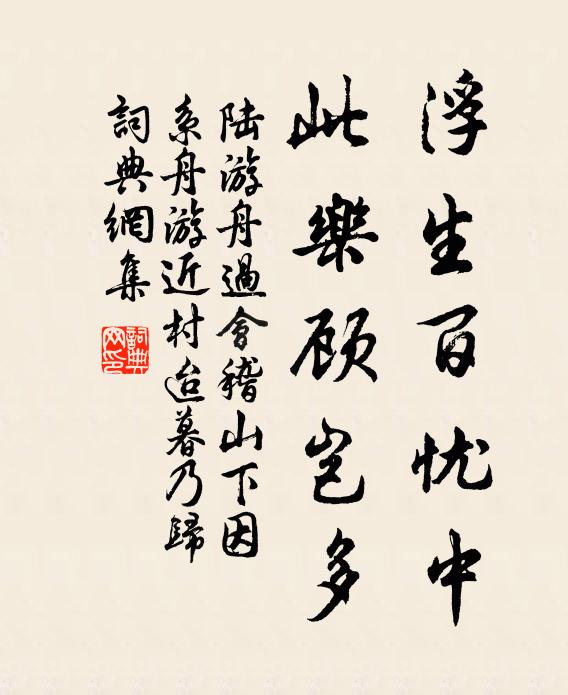 浮生百忧中
此樂顾岂多
陆游舟過會稽山下因
系舟游近村迨暮乃歸
詞典網集
詞典
网印